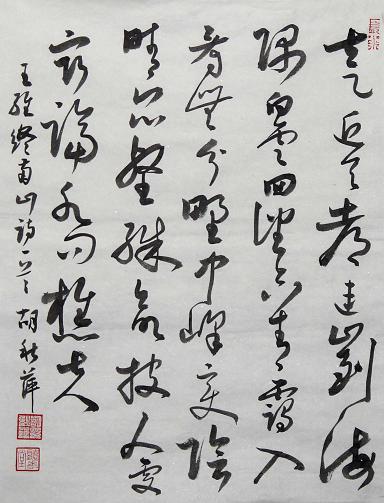 太乙近天都連山到海
隅白雲回望合青靄入
看無分野中峰變陰
晴衆壑殊欲投人處
宿隔水問樵夫
王維終南山詩一首 胡秋萍